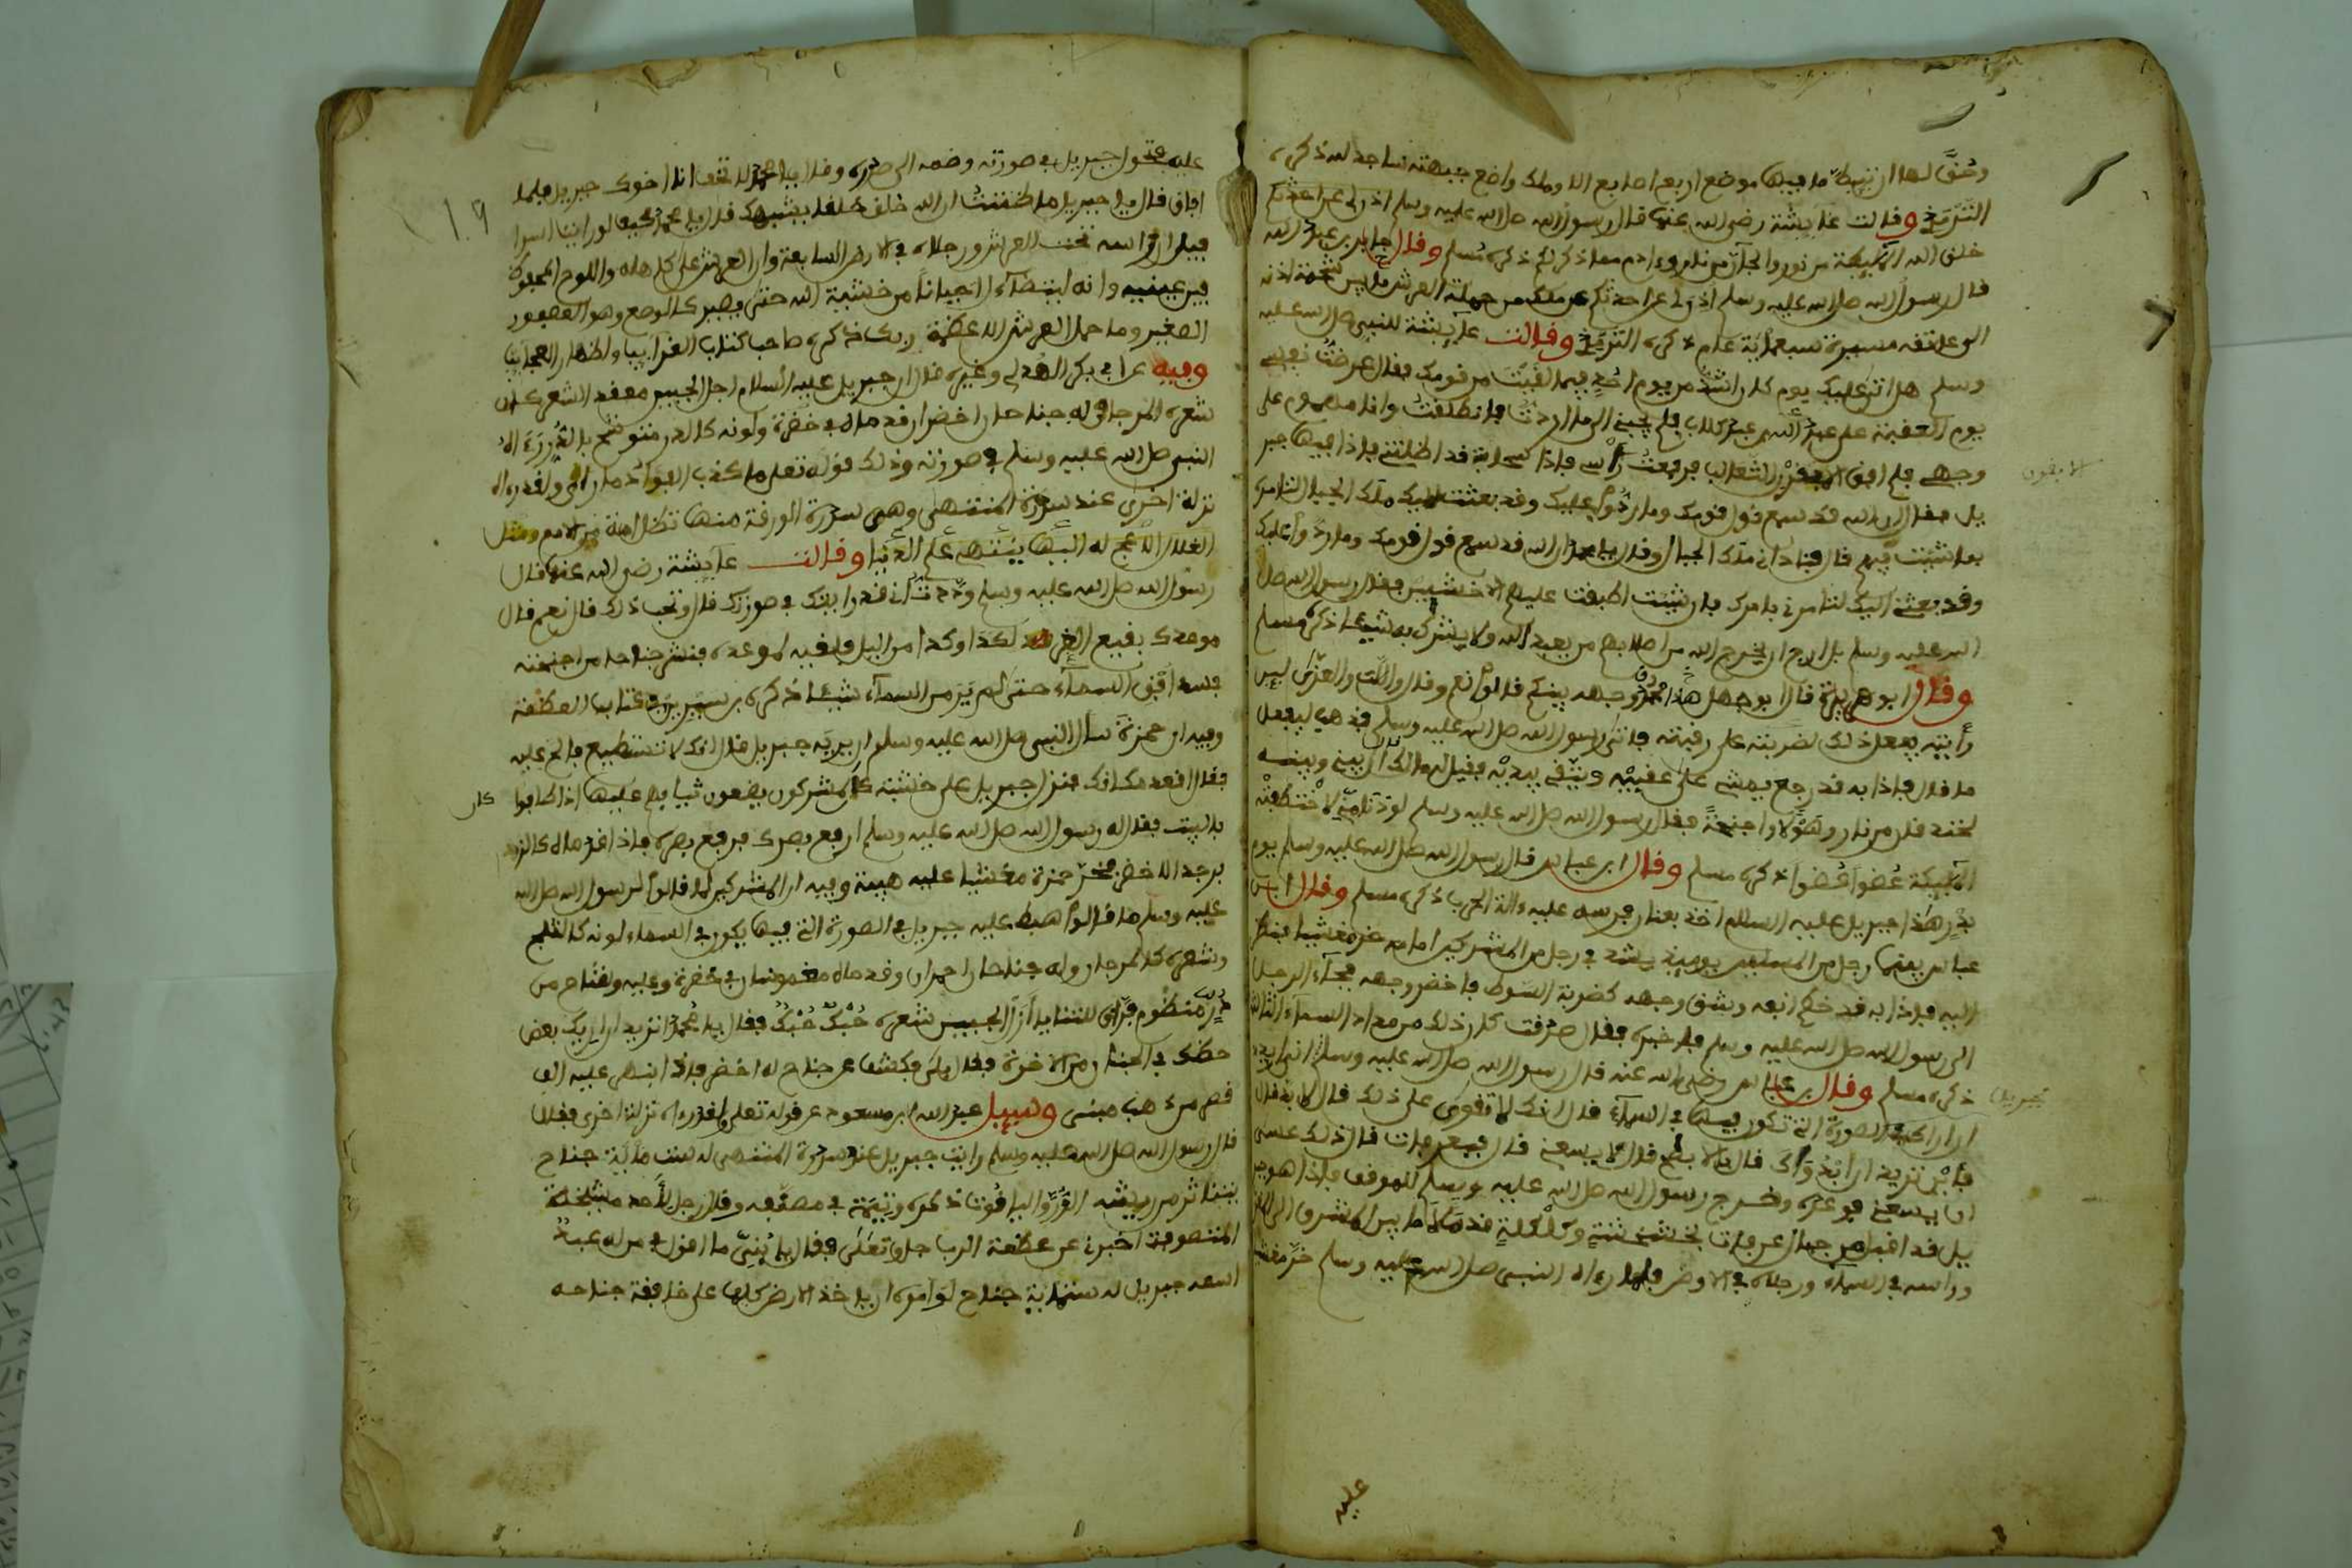 وحق لها ان تئط ما فيها موضع اربع اصابع الا وملك واضع جبهته ساجد لله ذكره
الترمذي وقالت عايشة رضي الله عنها قال رسول الله صلى الله عليه وسلم
خلق الله الملئكة من نور والجآن من نار وءادم مما ذكر لكم ذكره مسلم وقال جابر بن عبد الله
قال رسول الله صلى الله عليه وسلم اذن لي ان احدثكم عن ملك من حملة العرش ما بين شحمة اذنه
الى عاتقه مسيرة سبعماية عام ذكره الترمذي وقالت عآيشة للنبي صلى الله عليه
وسلم هل اتى عليك يوم كان اشد من يوم احد فيما لقيت من قومك فقال عرضت نفسي
يوم العقبة على عبد كلال فلم يجبني الى ما اردت فانطلقت وانا مهموم على
وجهي فلم افق الا بقرن الثعالب فرفعت رأسي فاذا سحابة قد اظلتني فاذا فيها جبر
يل فقال ان الله قد سمع قول قومك وما ردوا عليك وقد بعثت اليك ملك الجبال لتامره
بما شئت فيهم قال فناداني ملك الجبال وقال يا محمد ان الله قد سمع قول قومك وما ردوا عليك
وقد بعثني اليك لتامرني بامرك فان شئت اطبقت عليهم الاخشبين فقال رسول الله صلى
الله عليه وسلم بل ارجو ان يخرج الله من اصلابهم من يعبد الله ولا يشرك به شيئا ذكره مسلم
وقال ابو هريرة قال ابو جهل هل محمد وجهه بينكم قالوا نعم وقال واللات والعزى لين
رأيته يفعل ذلك لضربته على رقبته فاتى رسول الله صلى الله عليه وسلم فذهب ليفعل
ما قال فاذا به قد رجع يمشي على عقبيه ويتقي بيديه فقيل له ما لك قال بيني وبينه
لخندقا من نار وهولا واجنحة فقال رسول الله صلى الله عليه وسلم لو دنا مني لاختطفته
الملئكة عضوا عضوا ذكره مسلم وقال ابن عباس قال رسول الله صلى الله عليه وسلم يوم
بدر هذا جبريل عليه السلام اخذ بعنان فرسه عليه ءالة الحرب ذكره مسلم وقال ابن
عباس بينما رجل من المسلمين يوميذ يشتد في رجل من المشركين امامه خر مغشيا فنظر
اليه فاذا به قد خطم انفه وشق وجهه كضربة السوط فاخضر وجهه فجآء الرجل
الى رسول الله صلى الله عليه وسلم فاخبره فقال صدقت كان ذلك من مداد السمآء الثالثة
ذكره مسلم وقال بن عباس رضي الله عنه قال رسول الله صلى الله عليه وسلم اني اريد
ان اراك في الصورة التي تكون فيها في السمآء قال انك لا تقوى على ذلك قال لا بد قال
فاين تريد ان ابدو لك قال بالابطح قال لا يسعني قال فبعرفات قال ذلك عسى
ان يسعني فوعده وخرج رسول الله صلى الله عليه وسلم للموقف فاذا هو بجبر
يل قد اقبل من جبال عرفات بخشخشة وكلكلة قد ملا ما بين المشرق الى المغرب
وراسه في السمآء ورجلاه في الارض فلما رءاه النبي صلى الله عليه وسلم خر مغشيا
الابقون
جبريل
عليه
٢١٩
عليه فتحول جبريل في صورته وضمه الى صدره وقال يا محمد لا تخف انا اخوك جبريل فلما
افاق قال يا جبريل ما ظننت ان الله خلق خلقا يشبهك قال يا محمد كيف لو رايت اسرا
فيل ان راسه تحت العرش ورجلاه في الارض السابعة وان العرش على كاهله واللوح المحفوظ
بين عينيه وانه ليتضآءل احيانا من خشية الله حتى يصير كالوصع وهو العصفور
الصغير وما حمل العرش الا عظمة ربك ذكره صاحب كتاب الغرايب واظهار العجايب
وفيه عن ابي بكر الهذلي وغيره قال ان جبريل عليه السلام اجل الجبين معقد الشعر كان
شعره المرجان وله جناحان اخضران قدماه في خضرة ولونه كالدر
النبي صلى الله عليه وسلم في صورته وذلك قوله تعلى ما كذب الفؤاد ما راى ولقد رءاه
نزلة اخرى عند سدرة المنتهى وهي سدرة الورقة منها تظل امة من الامم ومثل
القلال اليها ينتهي علم الدنيا وقالت عآيشة رضي الله عنها قال
رسول الله صلى الله عليه وسلم وددت اني قد رايتك في صورتك قال وتحب ذلك قال نعم قال
موعدك بقيع الغرقد لكذا وكذا من الليل فلقيه لموعده فنشر جناحا من اجنحته
فسد افق السمآء حتى لم ير من السمآء شيئا ذكره بن سيرين في كتاب العظمة
وفيه ان حمزة سال النبي صلى الله عليه وسلم ان يريه جبريل قال انك لا تستطيع فالح عليه
فقال اقعد مكانك فنزل جبريل على خشبة كان المشركون يضعون ثيابهم عليها اذا طافوا
بالبيت فقال له رسول الله صلى الله عليه وسلم ارفع بصرك فرفع بصره فاذا قدماه كالز
برجد الاخضر فخر حمزة مغشيا عليه هيبة وفيه ان المشركين لما قالوا لرسول الله صلى الله
عليه وسلم ما قالوا هبط عليه جبريل في الصورة التي فيها يكون في السماء لونه كالثلج
وشعره كالمرجان وله جناحان احمران وقدماه مغموستان في خضرة وعليه وشاح من
در منظوم براق الثنايا ازل الجبين شعره حبك حبك فقال يا محمد اتريد ان اريك بعض
حظك في الجنة من الاخرة فقال بلى فكشف عن جناح له اخضر فاذا انتهى عليه الف
قصر من ذهب مبنى وسيل عبد الله بن مسعود عن قوله تعلى ولقد رءاه نزلة اخرى فقال
قال رسول الله صلى الله عليه وسلم رايت جبريل عند سدرة المنتهى له ست ماية جناح
يتناثر من ريشه الدر والياقوت ذكره في مصنفه وقال رجل
اخبرني عن عظمة الرب جل وتعلى فقال يا بني ما اقول في من له عبد
اسمه جبريل له ستماية جناح لو امره ان ياخذ الارض كلها على خافقة جناحه
كان